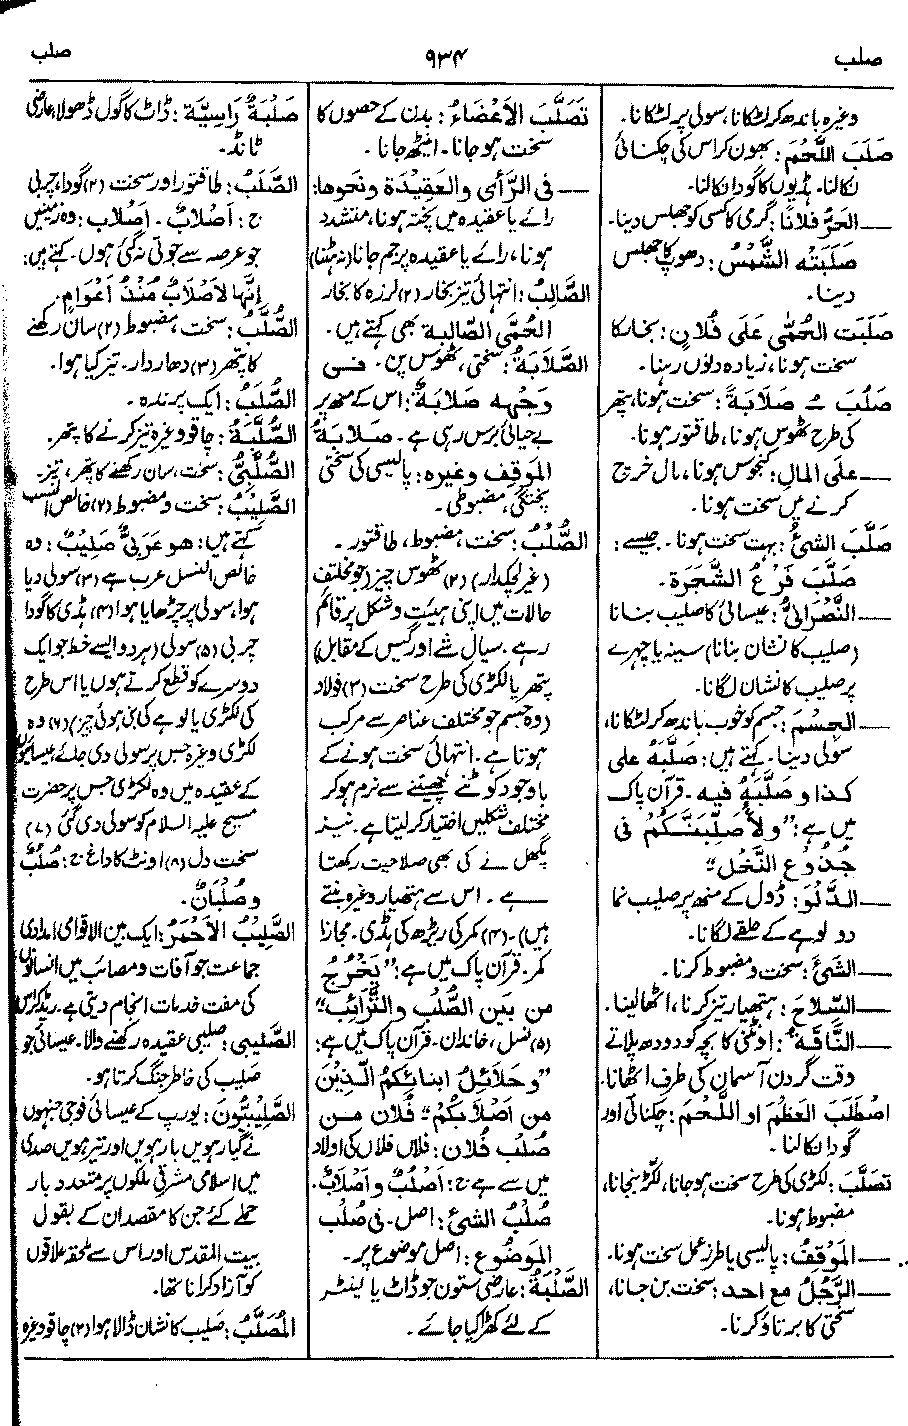 صلب
۹۳۴
صلب
وغیرہ باندھ کر لٹکانا، سولی پر لٹکانا۔
صَلَبَ اللَّحْمَ: بھون کر اس کی چکنائی
نکالنا۔ ہڈیوں کا گودا نکالنا۔
— الحَرُّ فلانًا: گرمی کا کسی کو جھلس دینا۔
صَلَبَتْه الشَّمْسُ: دھوپ کا جھلس
دینا۔
صَلَبَت الحُمّٰى عَلَى فُلَانٍ: بخار کا
سخت ہونا، زیادہ دنوں رہنا۔
صَلُبَ ـُ صَلَابَةً: سخت ہونا، پتھر
کی طرح ٹھوس ہونا، طاقتور ہونا۔
— علی المالِ: کنجوس ہونا، مال خرچ
کرنے میں سخت ہونا۔
صَلَّبَ الشیُٔ: بہت سخت ہونا۔ جیسے:
صَلَّبَ فَرْعُ الشَّجَرَة۔
— النَّصْرَانِیُّ: عیسائی کا صلیب بنانا
(صلیب کا نشان بنانا) سینہ یا چہرے
پر صلیب کا نشان لگانا۔
— الجِسْمَ: جسم کو خوب باندھ کر لٹکانا،
سولی دینا۔ کہتے ہیں: صَلَّبَهُ علی
کذا و صَلَّبَهُ فیه۔ قرآن پاک
میں ہے: "ولَأُصَلِّبَنَّكُمْ فی
جُذُوعِ النَّخْلِ"
— الدَّلْوَ: ڈول کے منھ پر صلیب نما
دو لوہے کے حلقے لگانا۔
— الشَّیَٔ: سخت و مضبوط کرنا۔
— السِّلَاحَ: ہتھیار تیز کرنا، اٹھا لینا۔
— النَّاقَةُ: اونٹنی کا بچہ کو دودھ پلاتے
وقت گردن آسمان کی طرف اٹھانا۔
اصْطَلَبَ العَظْمَ او اللَّحْمَ: چکنائی اور
گودا نکالنا۔
تَصَلَّبَ: لکڑی کی طرح سخت ہو جانا، لکڑ بنجانا،
مضبوط ہونا۔
— المَوْقِفُ: پالیسی یا طرز عمل سخت ہونا۔
— الرَّجُلُ مع احد: سخت بن جانا،
سختی کا برتاؤ کرنا۔
تَصَلَّبَ الأَعْضَاءُ: بدن کے حصوں کا
سخت ہو جانا۔ اینٹھ جانا۔
— فی الرَّأْی والعَقِیْدَة ونَحوِها:
رائے یا عقیدہ میں پختہ ہونا، متشدد
ہونا، رائے یا عقیدہ پر جم جانا (نہ ہٹنا)
الصَّالِبُ: انتہائی تیز بخار (۲) لرزہ کا بخار
الحُمَّى الصَّالِبة بھی کہتے ہیں۔
الصَّلَابَةُ: سختی، ٹھوس پن۔ فی
وَجْهِه صَلَابَةٌ: اس کے منھ پر
بے حیائی برس رہی ہے۔ صَلَابَةُ
المَوْقِف وغیرہ: پالیسی کی سختی
پختگی، مضبوطی۔
الصُّلْبُ: سخت، مضبوط، طاقتور۔
(غیر لچکدار) (۲) ٹھوس چیز (جو مختلف
حالات میں اپنی ہیئت و شکل پر قائم
رہے۔ سیال شے اور گیس کے مقابل)
پتھر یا لکڑی کی طرح سخت (۳) فولاد
(وہ جسم جو مختلف عناصر سے مرکب
ہوتا ہے۔ انتہائی سخت ہونے کے
باوجود کوٹنے سے نرم ہو کر
مختلف شکلیں اختیار کر لیتا ہے۔ نیز
پگھلنے کی بھی صلاحیت رکھتا
ہے۔ اس سے ہتھیار وغیرہ بنتے
ہیں)۔ (۴) کمر کی ریڑھ کی ہڈی۔ مجازا
کمر۔ قرآن پاک میں ہے: "یَخْرُجُ
من بَیْنِ الصُّلْبِ والتَّرَائِبِ"
(۵) نسل، خاندان۔ قرآن پاک میں ہے:
"وحَلَائِلُ ابنائِكُمُ الَّذِیْنَ
من اَصْلَابِكُمْ" فُلَان مِن
صُلْبِ فُلَان: فلاں فلاں کی اولاد
میں سے ہے ج: أَصْلُبٌ و أَصْلَابٌ۔
صُلْبُ الشیءِ: اصل۔ فی صُلْبِ
المَوْضُوعِ: اصل موضوع پر۔
الصُّلْبَةُ: عارضی ستون جو ڈاٹ یا لینٹر
کے لئے کھڑا کیا جائے۔
صَلْبَةٌ رَاسِیَّة: ڈاٹ کا گول ڈھولا، عارضی
ٹانڈ۔
الصَّلَبُ: طاقتور اور سخت (۲) گودا، چربی
ج: أَصْلَابٌ۔ أَصْلَاب: وہ زمینیں
جو عرصہ سے جوتی نہ گئی ہوں۔ کہتے ہیں:
إنَّها لأَصْلَابٌ مُنْذُ أَعْوَامٍ۔
الصُّلَّبُ: سخت، مضبوط (۲) سان رکھنے
کا پتھر (۳) دھاردار۔ تیز کیا ہوا۔
الصُّلَبُ: ایک پرندہ۔
الصُّلَّبَةُ: چاقو وغیرہ تیز کرنے کا پتھر۔
الصُّلَّبِیُّ: سخت، سان رکھنے کا پتھر، تیز۔
الصَّلِیْبُ: سخت و مضبوط (۲) خالص النسب
کہتے ہیں: هو عَرَبِیٌّ صَلِیْبٌ: وہ
خالص النسل عرب ہے (۳) سولی دیا
ہوا، سولی پر چڑھایا ہوا (۴) ہڈی کا گودا
چربی (۵) سولی (ہر دو ایسے خط جو ایک
دوسرے کو قطع کرتے ہوں یا اس طرح
کی لکڑی یا لوہے کی بنی ہوئی چیز) (۶) وہ
لکڑی وغیرہ جس پر سولی دی جائے، عیسائیوں
کے عقیدہ میں وہ لکڑی جس پر حضرت
مسیح علیہ السلام کو سولی دی گئی (۷)
سخت دل (۸) اونٹ کا داغ ج: صُلُبٌ
وصُلْبَانٌ۔
الصَّلِیْبُ الأَحْمَرُ: ایک بین الاقوامی امدادی
جماعت جو آفات و مصائب میں انسانوں
کی مفت خدمات انجام دیتی ہے۔ ریڈ کراس
الصَّلِیْبِی: صلیبی عقیدہ رکھنے والا۔ عیسائی جو
صلیب کی خاطر جنگ کرتا ہو۔
الصَّلِیْبِیُّونَ: یورپ کے عیسائی فوجی جنہوں
نے گیارہویں بارہویں اور تیرہویں صدی
میں اسلامی مشرقی ملکوں پر متعدد بار
حملے کئے جن کا مقصد ان کے بقول
بیت المقدس اور اس سے ملحقہ علاقوں
کو آزاد کرانا تھا۔
المُصَلَّبُ: صلیب کا نشان ڈالا ہوا (۲) چاقو وغیرہ